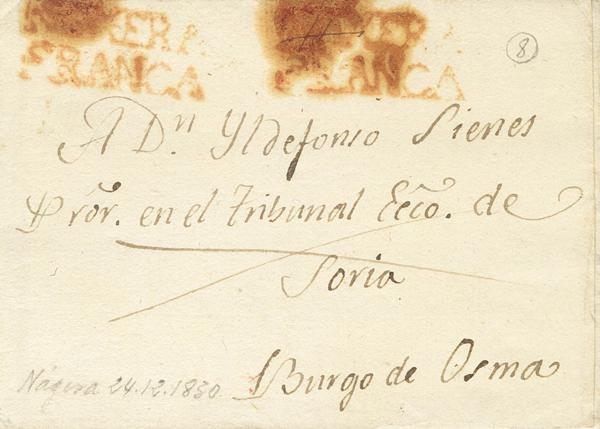 NAXERA NAXERA
FRANCA FRANCA
8
A Dn. Yldefonso Sienes
Pror. en el Tribunal Ecco. de
Soria
Burgo de Osma
Nágera 24.12.1830